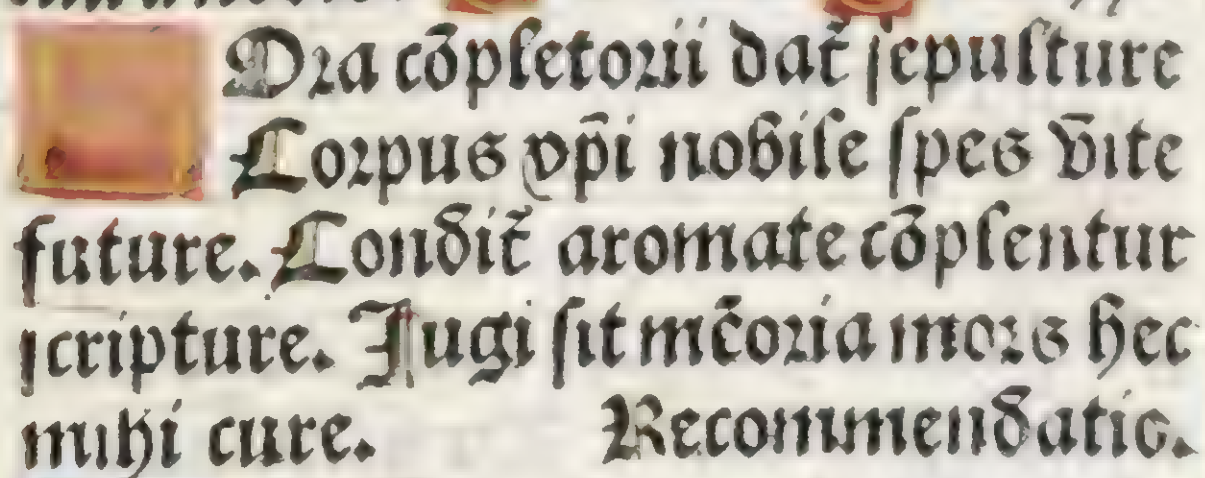 Ora cōpletorii dat̄ sepulture
Corpus xp̄i nobile spes v̄ite
future. Condit̄ aromate cōplentur
scripture. Jugi sit mēoria mors hec
mihi cure. Recommendatio.